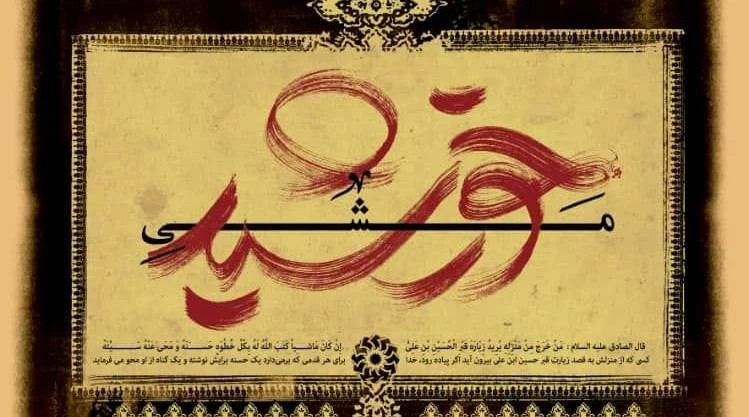 خورشید
مَشی
قال الصادق علیه السلام : مَنْ خَرَجَ مِنْ مَنْزِلِهِ یُریدُ زِیارَةَ قَبْرِ الْحُسَیْنِ بْنِ عَلیٍّ ... إنْ کَانَ مَاشیاً کَتَبَ اللَّهُ لَهُ بِکُلِّ خُطْوَةٍ حَسَنَةً وَ مَحیٰ عَنْهُ سَیِّئَةً
کسی که از منزلش به قصد زیارت قبر حسین ابن علی بیرون آید اگر پیاده رود، خدا برای هر قدمی که برمی‌دارد یک حسنه برایش نوشته و یک گناه از او محو می فرماید